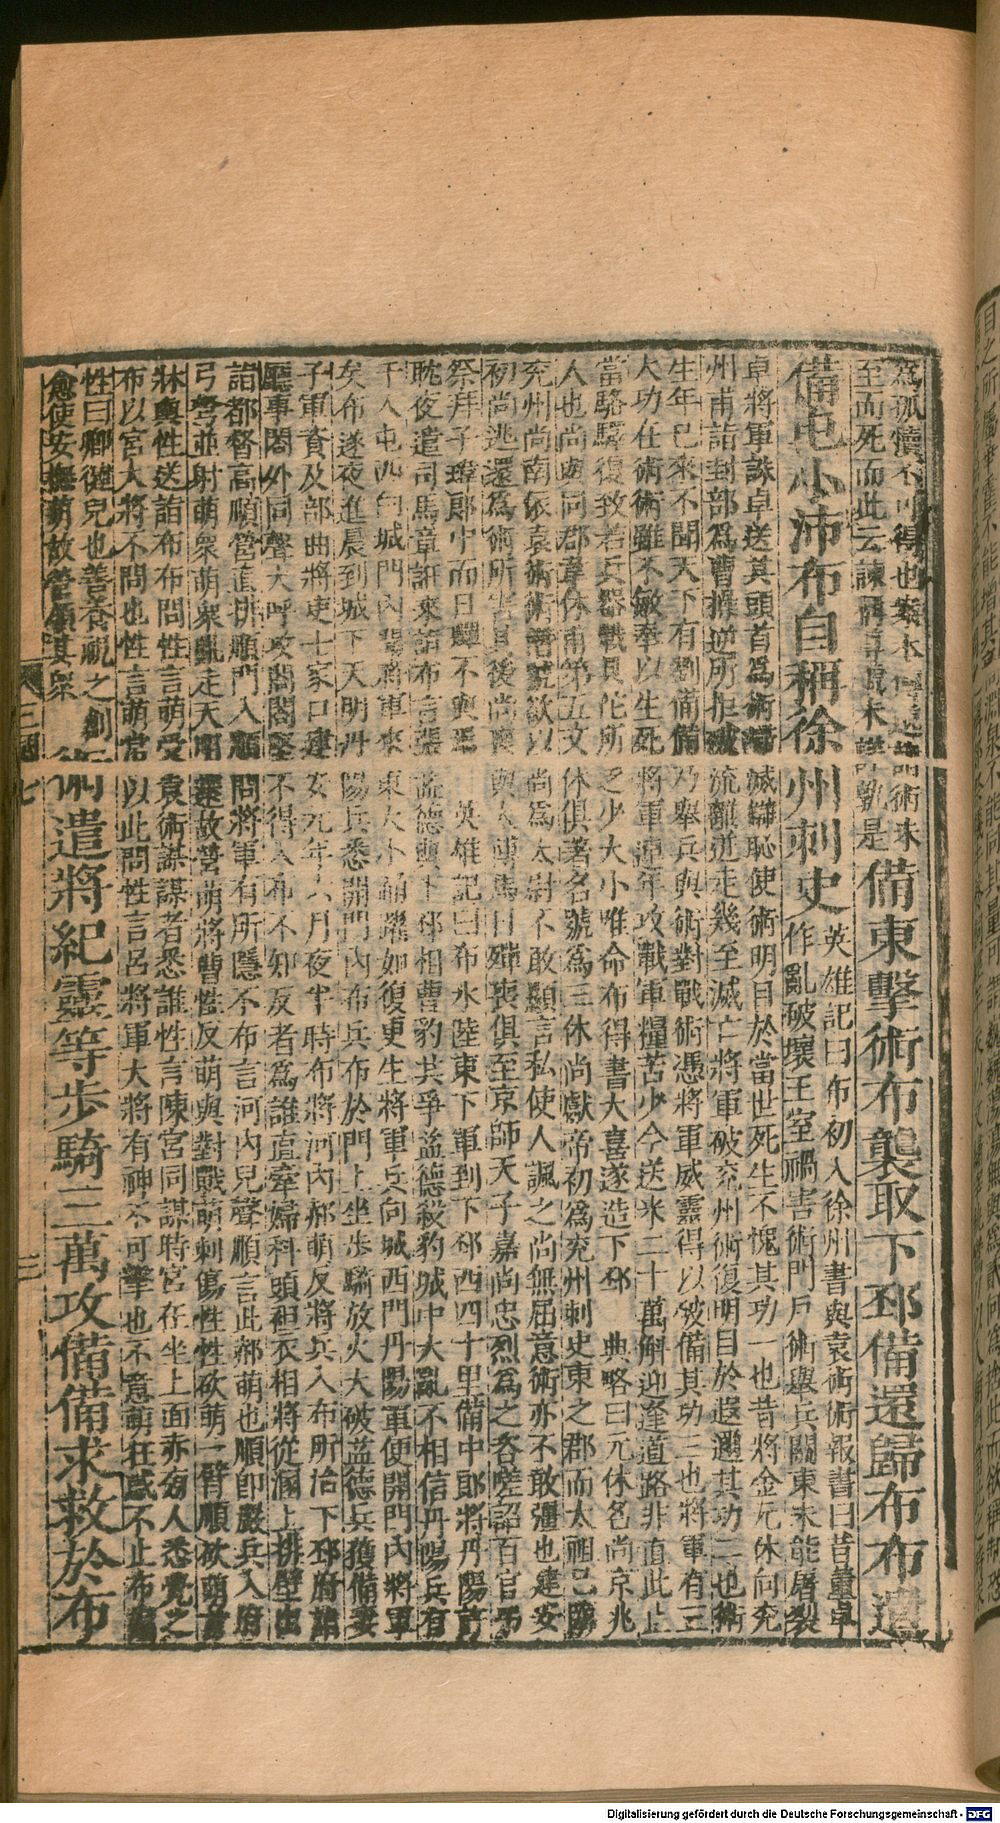 為孤犢不可得也案本傳諸術珠
至而死而此云諫稱尊號未詳孰是
備東擊術布襲取下邳備還歸布布遣
備屯小沛布自稱徐州刺史
英雄記曰布初入徐州書與袁術術報書曰昔董卓
作亂破壞王室禍害術門戶術舉兵關東未能屠裂
卓將軍誅卓送其頭首為術掃滅讎恥使術明目於當世死生不愧其功一也昔將金元休向兗
州甫詣封部為曹操逆所拒破流離迸走幾至滅亡將軍破兗州術復明目於遐邇其功二也術
生年已來不聞天下有劉備備乃舉兵與術對戰術憑將軍威靈得以破備其功三也將軍有三
大功在術術雖不敏奉以生死將軍連年攻戰軍糧苦少今送米二十萬斛迎逢道路非直此止
當駱驛復致若兵器戰具佗所乏少大小唯命布得書大喜遂造下邳　典略曰元休名尚京兆
人也尚與同郡韋休甫第五文休俱著名號為三休尚獻帝初為兗州刺史東之郡而太祖已臨
兗州尚南依袁術術僭號欲以尚為太尉不敢顯言私使人諷之尚無屈意術亦不敢彊也建安
初尚逃還為術所害其後尚喪與太傅馬日磾喪俱至京師天子嘉尚忠烈為之咨嗟詔百官弔
祭拜子瑋郎中而日磾不與焉　英雄記曰布水陸東下軍到下邳西四十里備中郎將丹陽許
耽夜遣司馬章誑來詣布言張益德與下邳相曹豹共爭益德殺豹城中大亂不相信丹陽兵有
千人屯西白城門內聞將軍來東大小踊躍如復更生將軍兵向城西門丹陽軍便開門內將軍
矣布遂夜進晨到城下天明丹陽兵悉開門內布兵布於門上坐步騎放火大破益德兵獲備妻
子軍資及部曲將吏士家口建安元年六月夜半時布將河內郝萌反將兵入布所治下邳府詣
廳事閤外同聲大呼攻閤閤堅不得入布不知反者為誰直牽婦科頭袒衣相將從溷上排壁出
詣都督高順營直排順門入順問將軍有所隱不布言河內兒聲順言此郝萌也順即嚴兵入府
弓弩並射萌眾萌眾亂走天明還故營萌將曹性反萌與對戰萌刺傷性性斫萌一臂順斫萌首
牀輿性送詣布布問性言萌受袁術謀謀者悉誰性言陳宮同謀時宮在坐上面赤旁人悉覺之
布以宮大將不問也性言萌常以此問性言呂將軍大將有神不可擊也不意萌狂惑不止布謂
性曰卿健兒也善養視之創
愈使安撫萌故營領其眾
術遣將紀靈等步騎三萬攻備備求救於布
三國 七
三
Digitalisierung gefördert durch die Deutsche Forschungsgemeinschaft - DFG